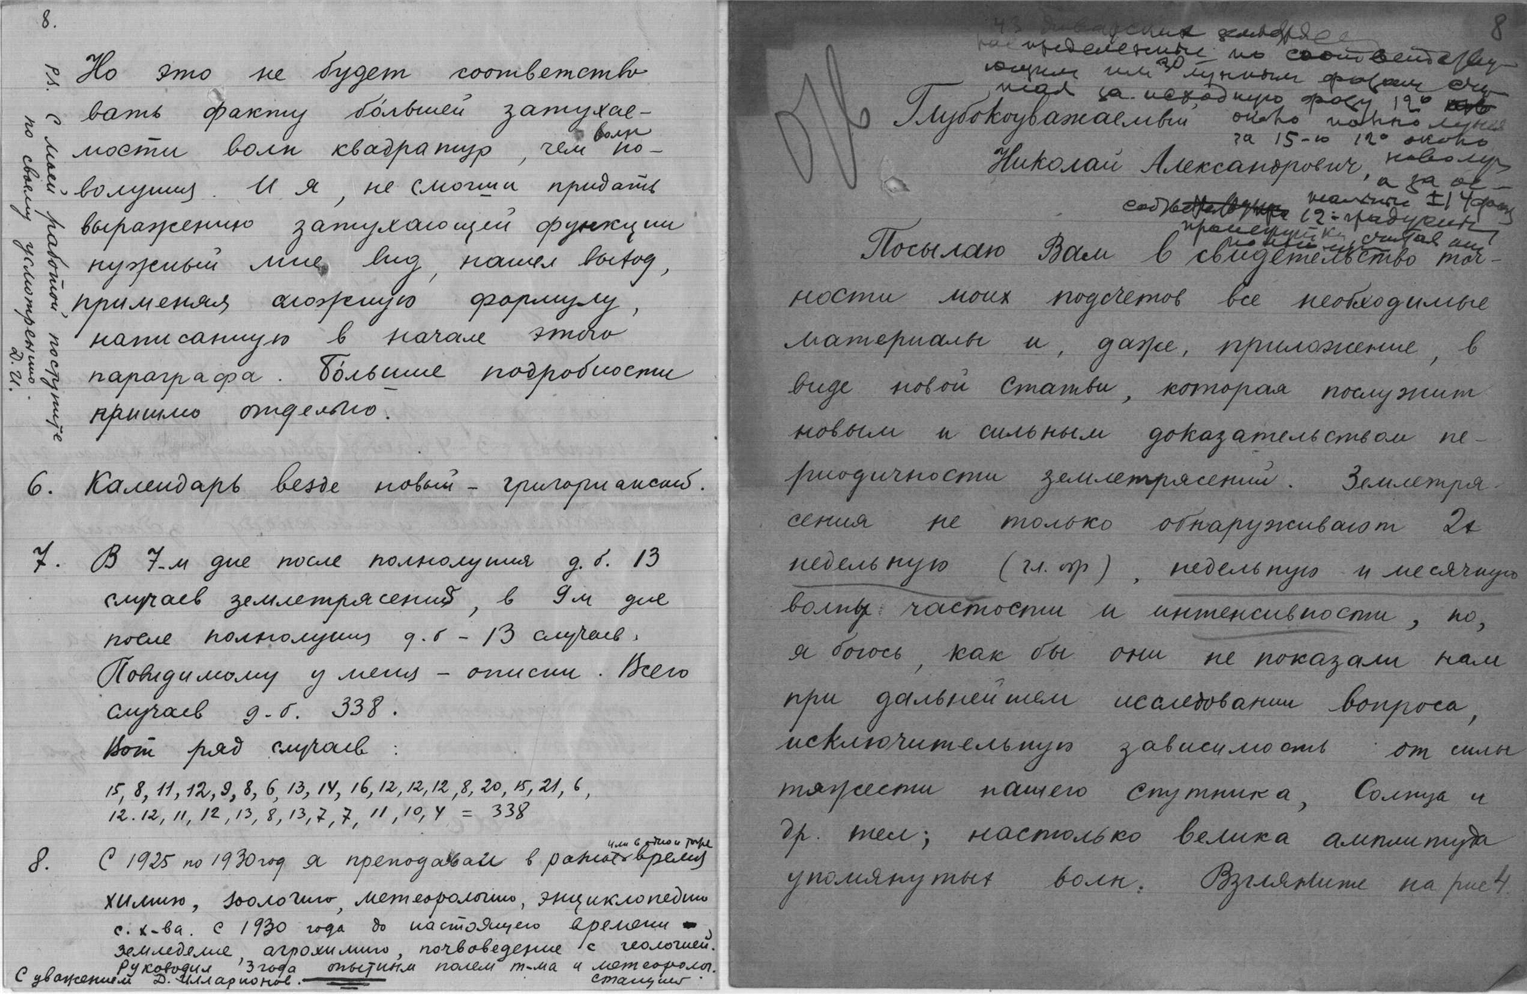 8.
Но это не будет соответство
вать факту бо́льшей затухае-
мости волн квадратур, чем волн по-
волуния. И я, не смогши придать
выражению затухающей функции
нужный мне вид, нашел выход,
применяя сложную формулу,
написанную в начале этого
параграфа. Бо́льшие подробности
пришлю отдельно.
6. Календарь везде новый - григорианский.
7. В 7-м дне после полнолуния д.б. 13
случаев землетрясений, в 9м дне
после полнолуния д.б - 13 случаев.
Повидимому у меня - описки. Всего
случаев д.-б. 338.
Вот ряд случаев:
15, 8, 11, 12, 9, 8, 6, 13, 14, 16, 12, 12, 12, 8, 20, 15, 21, 6,
12. 12, 11, 12, 13, 8, 13, 7, 7, 11, 10, 4 = 338
8. С 1925 по 1930 год я преподавал в разное время
химию, зоологию, метеорологию, энциклопедию
с. х-ва. С 1930 года до настоящего времени -
земледелие, агрохимию, почвоведение с геологией.
Руководил 3 года опытным полем т-ма и метеоролог.
станцией.
С уважением Д. Илларионов.
P.S. С моей работой поступите
по своему усмотрению.
Д.И.
8
распределенные по соответству-
ющим им 30 лунным фазам счи-
тая за исходную фазу 12°
около полнолуния
за 15-ю 12° около
новолун
а за ос-
тальные ±14 фаз
12-градусн
промежутки считая от
Глубокоуважаемый
Николай Александрович,
Посылаю Вам в свидетельство точ-
ности моих подсчетов все необходимые
материалы и, даже, приложение, в
виде новой статьи, которая послужит
новым и сильным доказательством пе-
риодичности землетрясений. Землетря-
сения не только обнаруживают 2х
недельную (гл. обр), недельную и месячную
волны частости и интенсивности, но,
я боюсь, как бы они не показали нам
при дальнейшем исследовании вопроса,
исключительную зависимость от силы
тяжести нашего спутника, Солнца и
др. тел; настолько велика амплитуда
упомянутых волн. Взгляните на рис 4.